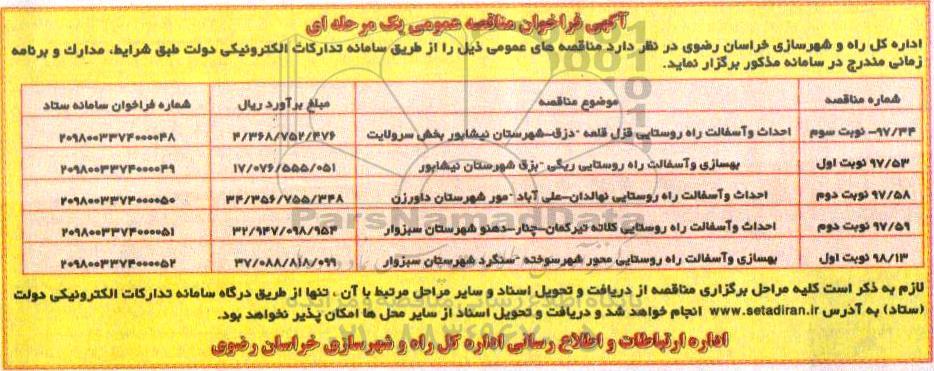 آگهی فراخوان مناقصه عمومی یک مرحله ای
اداره کل راه و شهرسازی خراسان رضوی در نظر دارد مناقصه های عمومی ذیل را از طریق سامانه تدارکات الکترونیکی دولت طبق شرایط، مدارک و برنامه
زمانی مندرج در سامانه مذکور برگزار نماید.
شماره مناقصه موضوع مناقصه مبلغ برآورد ریال شماره فراخوان سامانه ستاد
۹۷/۳۴- نوبت سوم احداث وآسفالت راه روستایی قزل قلعه -دزق-شهرستان نیشابور بخش سرولایت ۴/۳۶۸/۷۵۲/۴۷۶ ۲۰۹۸۰۰۳۳۷۴۰۰۰۰۴۸
۹۷/۵۳ نوبت اول بهسازی وآسفالت راه روستایی ریگی -بزق شهرستان نیشابور ۱۷/۰۷۶/۵۵۵/۰۵۱ ۲۰۹۸۰۰۳۳۷۴۰۰۰۰۴۹
۹۷/۵۸ نوبت دوم احداث وآسفالت راه روستایی نهالدان-علی آباد -مور شهرستان داورزن ۳۴/۳۵۶/۷۵۵/۳۴۸ ۲۰۹۸۰۰۳۳۷۴۰۰۰۰۵۰
۹۷/۵۹ نوبت دوم احداث وآسفالت راه روستایی کلاته تیرکمان-چنار-دهنو شهرستان سبزوار ۳۲/۹۴۷/۰۹۸/۹۵۴ ۲۰۹۸۰۰۳۳۷۴۰۰۰۰۵۱
۹۸/۱۳ نوبت اول بهسازی وآسفالت راه روستایی محور شهرسوخته -سنگرد شهرستان سبزوار ۳۷/۰۸۸/۸۱۸/۰۹۹ ۲۰۹۸۰۰۳۳۷۴۰۰۰۰۵۲
ParsNamadData
لازم به ذکر است کلیه مراحل برگزاری مناقصه از دریافت و تحویل اسناد و سایر مراحل مرتبط با آن ، تنها از طریق درگاه سامانه تدارکات الکترونیکی دولت
(ستاد) به آدرس www.setadiran.ir انجام خواهد شد و دریافت و تحویل اسناد از سایر محل ها امکان پذیر نخواهد بود.
اداره ارتباطات و اطلاع رسانی اداره کل راه و شهرسازی خراسان رضوی